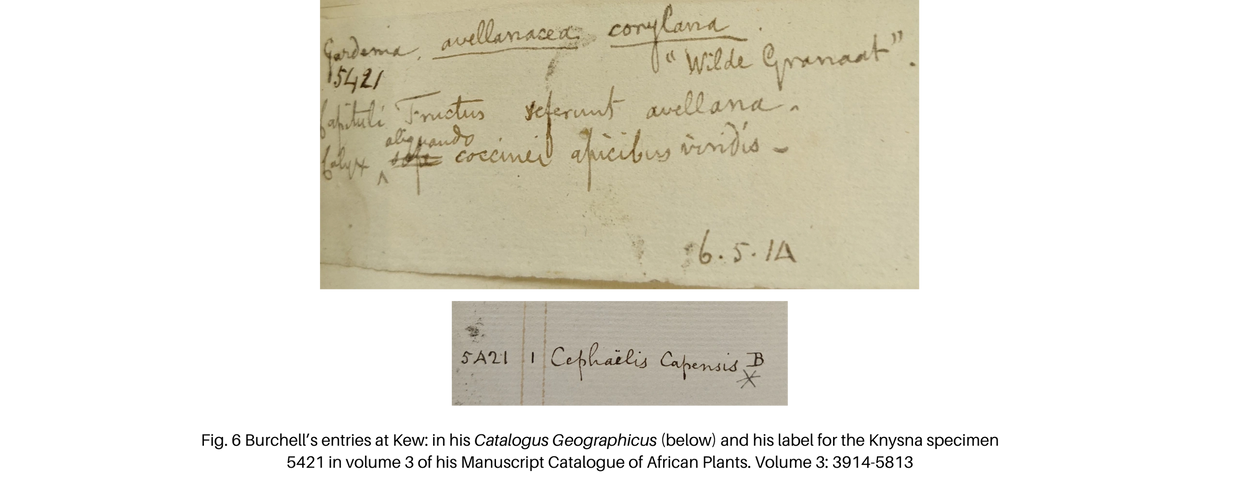 Gardenia. avellanacea corylana.
5421 "Wilde Granaat".
Capituli Fructus referunt avellana.
aliquando
Calyx ^ coccinei apicibus viridis -
6.5.14
5421 1 Cephaëlis Capensis B
Fig. 6 Burchell’s entries at Kew: in his Catalogus Geographicus (below) and his label for the Knysna specimen
5421 in volume 3 of his Manuscript Catalogue of African Plants. Volume 3: 3914-5813